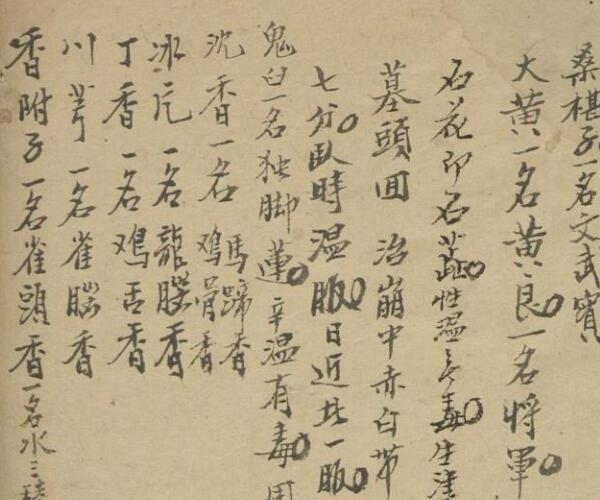 桑椹子一名文武實
大黄一名黄良一名將軍
石花即石蕋性温无毒生
墓頭囬 治崩中赤白带
七分臥時温服日近此一服
鬼臼一名独脚蓮辛温有毒用
沉香一名鸡骨香馬蹄香
冰片一名龍腦香
丁香一名鸡舌香
川芎一名雀腦香
香附子一名雀頭香一名水三